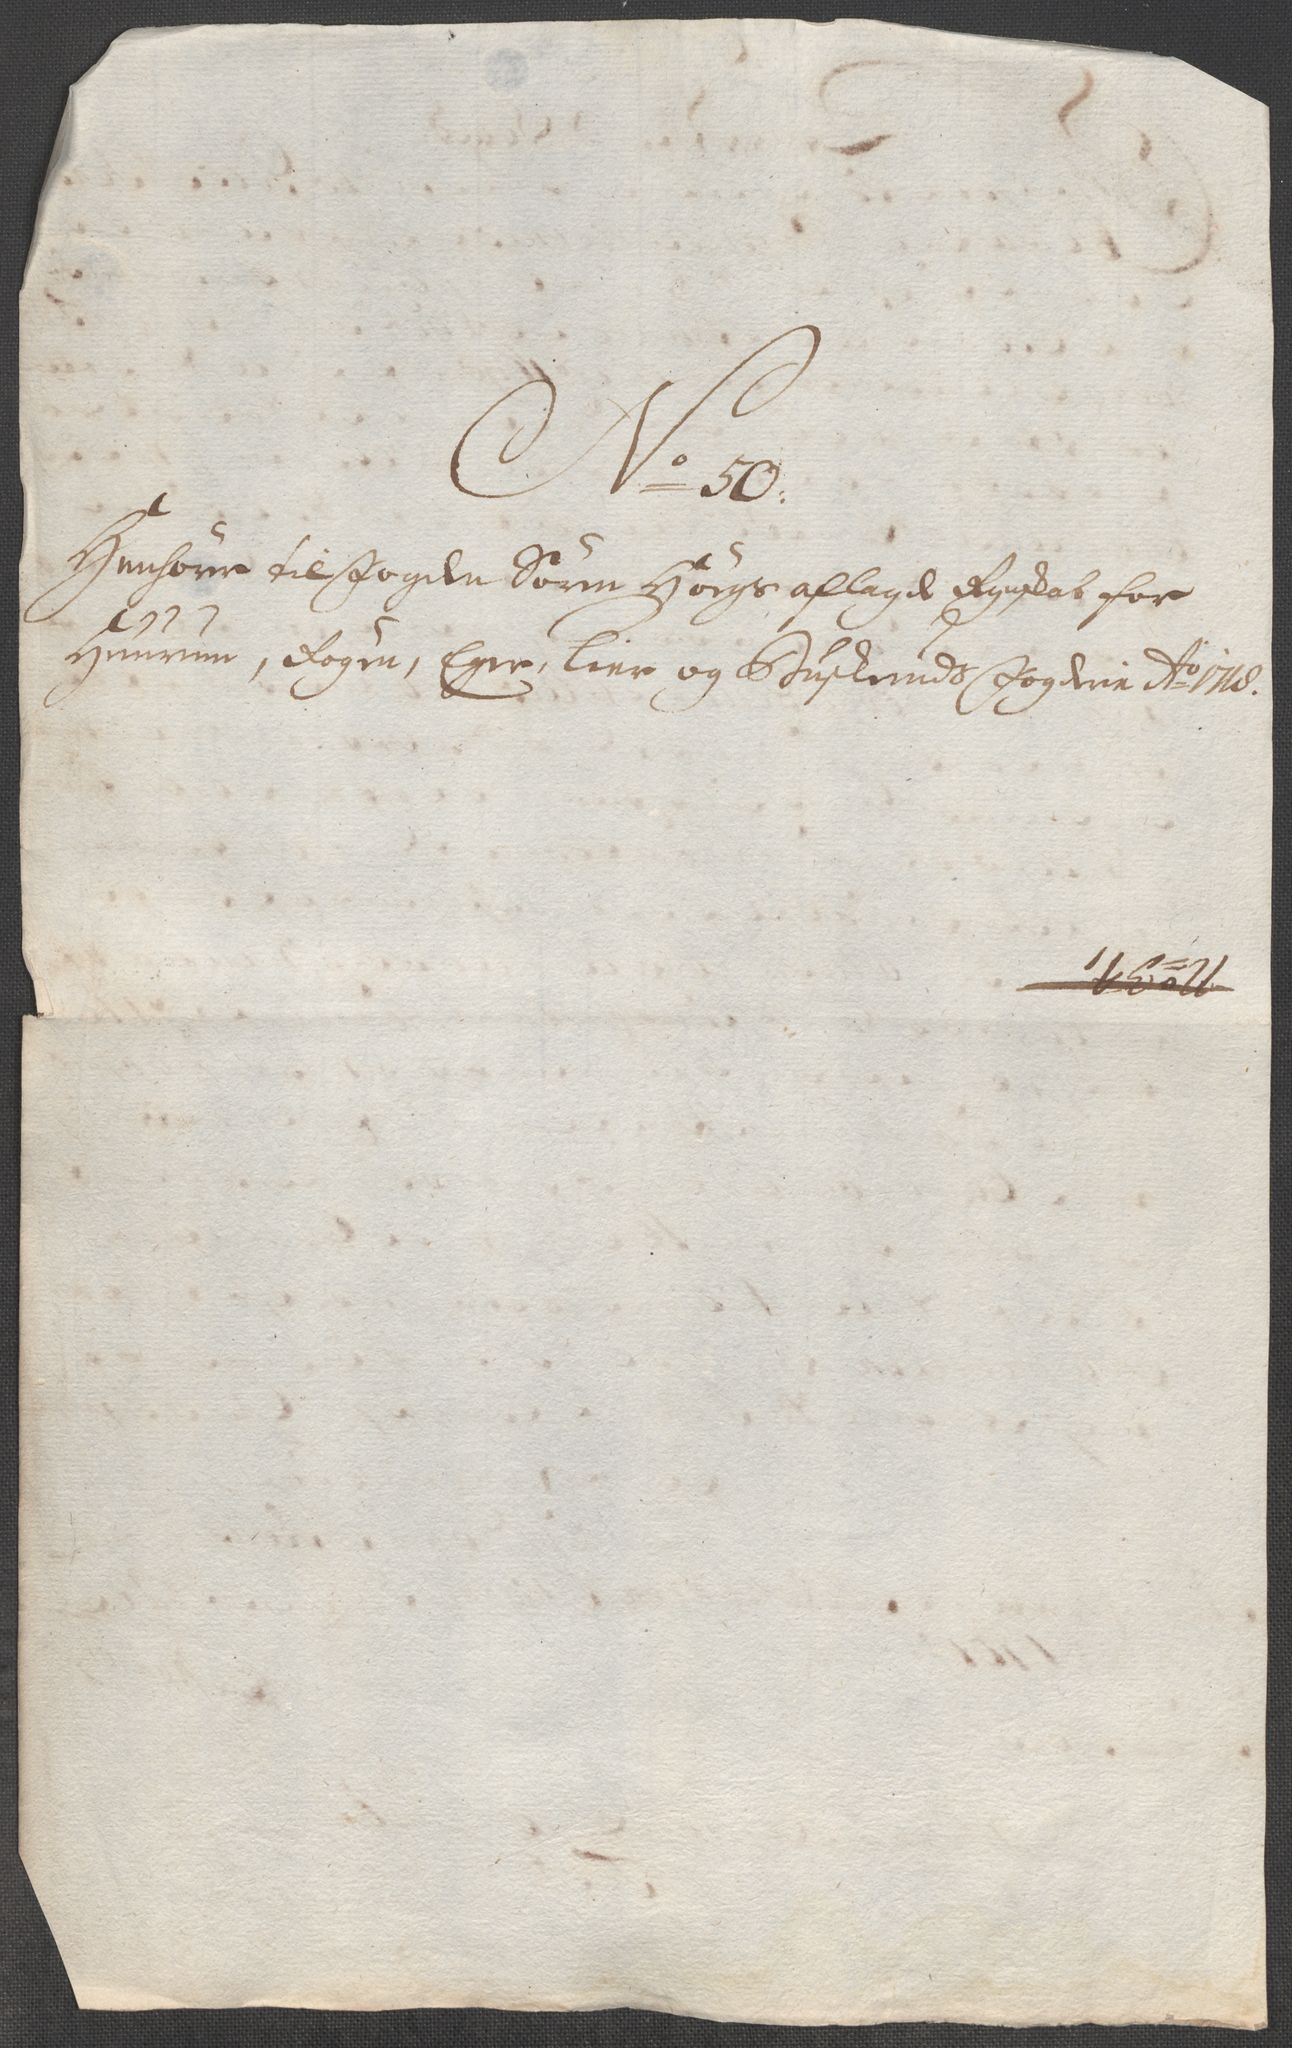 No 50.
Henhörer til Fogden Sören Hörgs aflagde Regnskab for
Hurrum, Rögen, Eger, Lier og Buskeruds Fogderie Ao 1718.